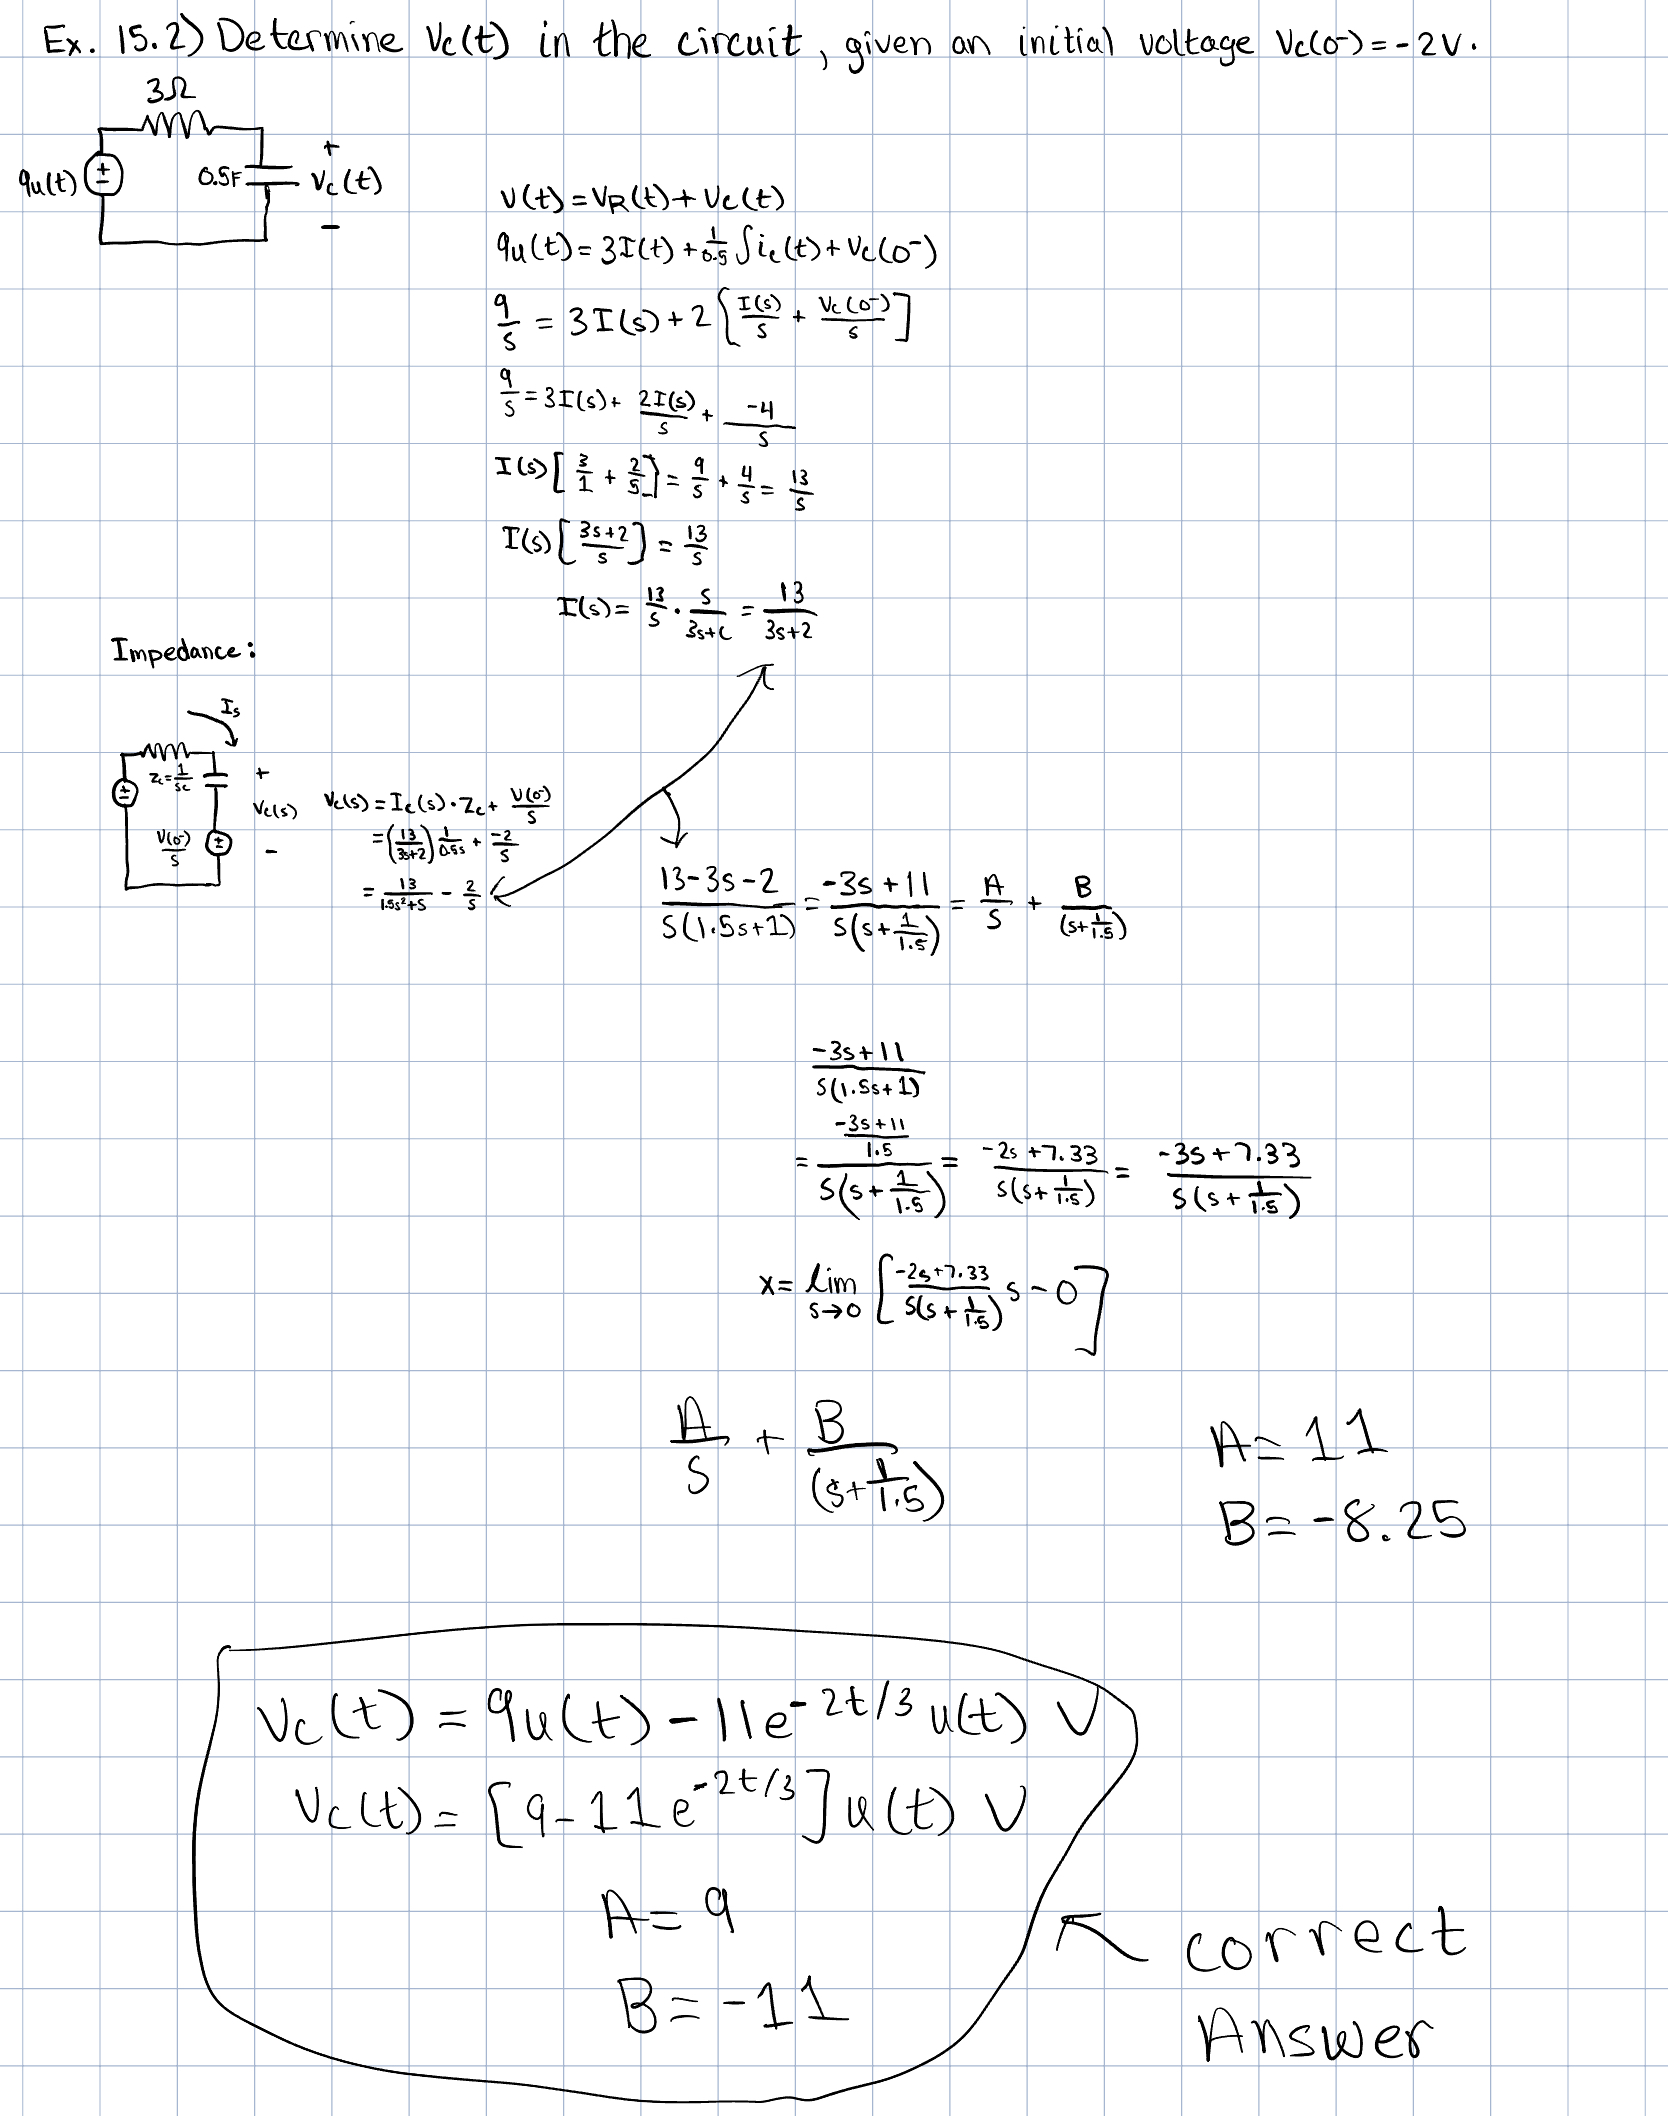 Ex. 15.2) Determine Vc(t) in the circuit, given an initial voltage Vc(0-) = -2V.
3Ω
9u(t)
+
-
0.5F
+
Vc(t)
-
V(t) = VR(t) + Vc(t)
9u(t) = 3I(t) + 1/0.5 ∫ic(t) + Vc(0-)
9/s = 3I(s) + 2[I(s)/s + Vc(0-)/s]
9/s = 3I(s) + 2I(s)/s + -4/s
I(s)[3/1 + 2/s] = 9/s + 4/s = 13/s
I(s)[3s+2/s] = 13/s
I(s) = 13/s · s/3s+c = 13/3s+2
Impedance:
Is
Zc = 1/sc
+
Vc(s)
-
V(0-)/s
Vc(s) = Ic(s) · Zc + V(0-)/s
= (13/3s+2) 1/0.5s + -2/s
= 13/1.5s²+s - 2/s
13-3s-2/s(1.5s+1) = -3s+11/s(s+1/1.5) = A/s + B/(s+1/1.5)
-3s+11/s(1.5s+1)
= -3s+11/1.5/s(s+1/1.5) = -2s+7.33/s(s+1/1.5) = -3s+7.33/s(s+1/1.5)
x = lim s→0 [-2s+7.33/s(s+1/1.5) s - 0]
A/s + B/(s+1/1.5)
A = 11
B = -8.25
Vc(t) = 9u(t) - 11e^-2t/3 u(t) V
Vc(t) = [9 - 11e^-2t/3] u(t) V
A = 9
B = -11
correct
Answer